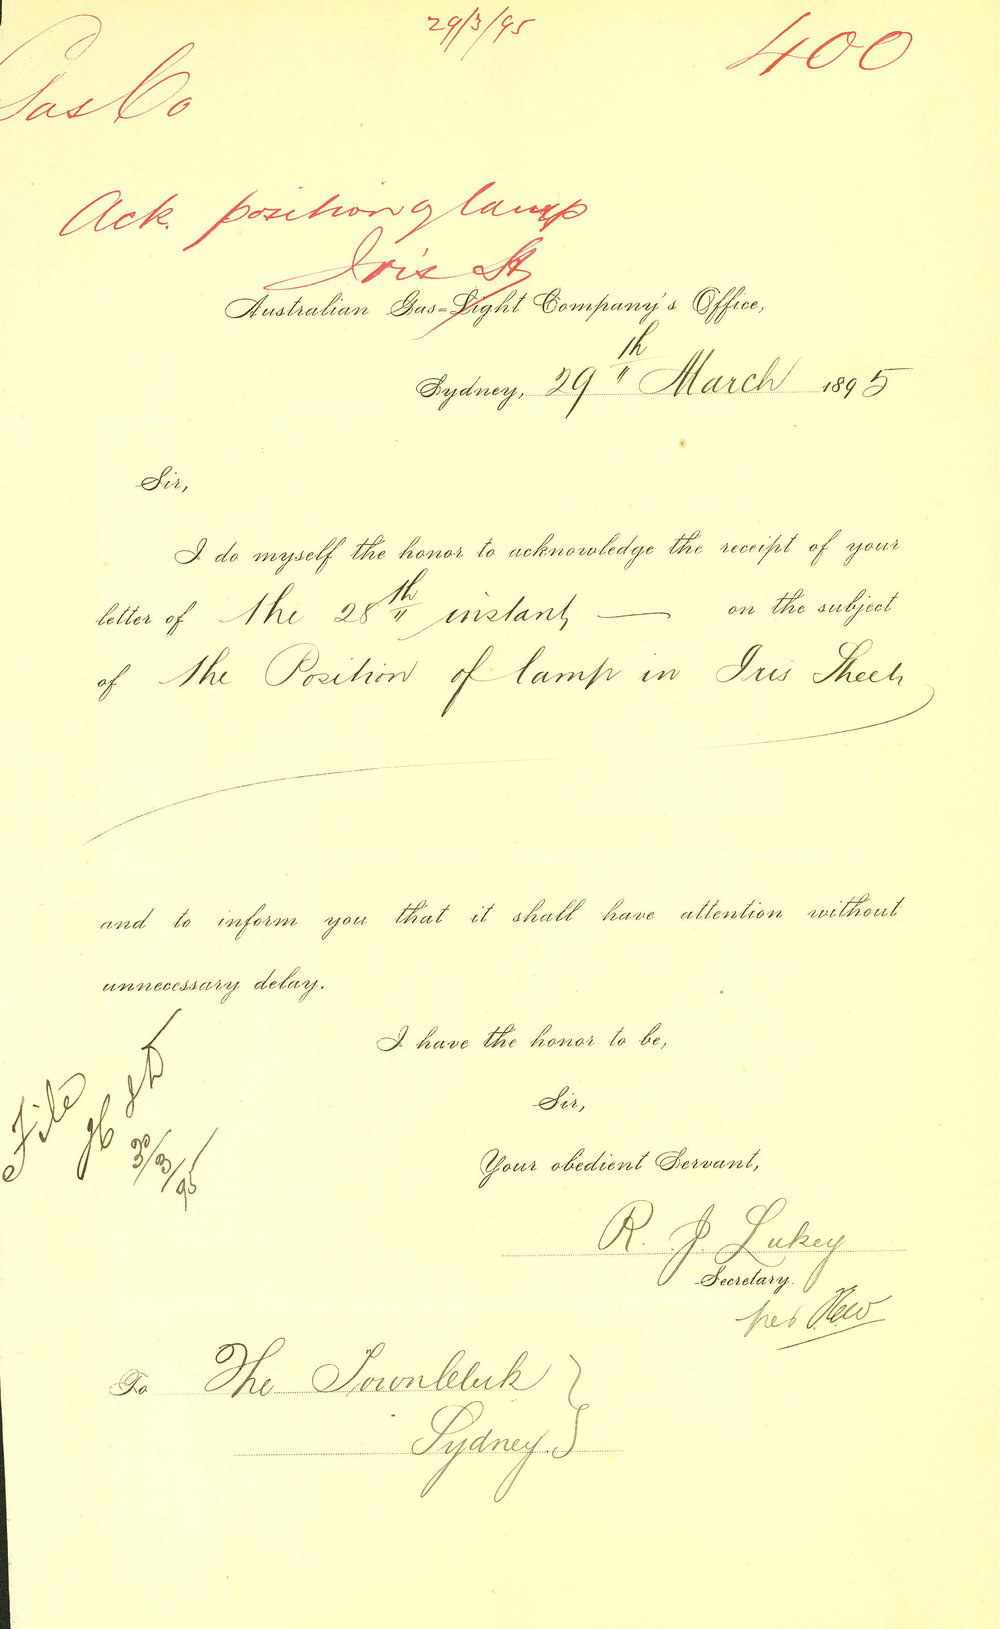 29/3/95
400
Gas Co
Ack. position of lamp
Iris St
Australian Gas-Light Company's Office,
Sydney, 29th March 1895
Sir,
I do myself the honor to acknowledge the receipt of your
letter of the 28th instant, — on the subject
of the Position of lamp in Iris Street
and to inform you that it shall have attention without
unnecessary delay.
I have the honor to be,
Sir,
Your obedient Servant,
R. J. Lukey
Secretary.
per
File
30/3/95
To The Town Clerk
Sydney.